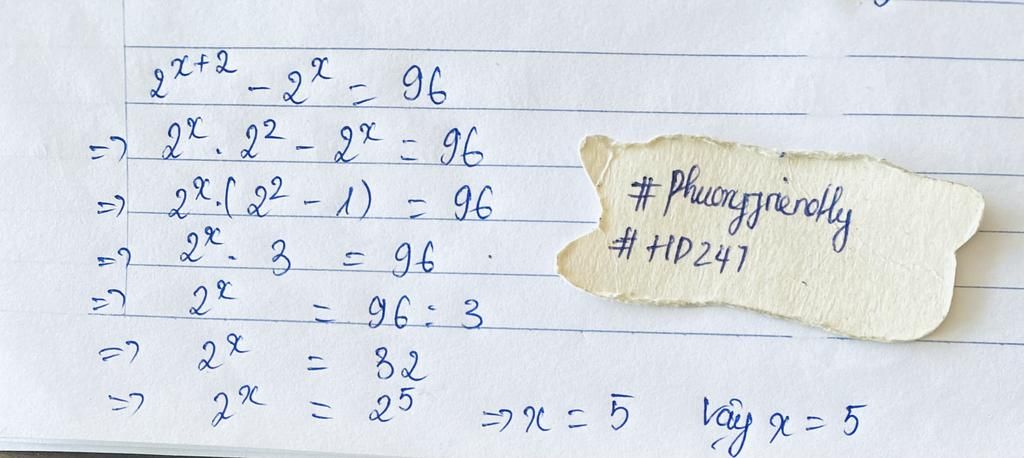 2^{x+2} - 2^x = 96
=> 2^x . 2^2 - 2^x = 96
=> 2^x . (2^2 - 1) = 96
=> 2^x . 3 = 96
=> 2^x = 96 : 3
=> 2^x = 32
=> 2^x = 2^5 => x = 5 Vậy x = 5
# Phuongfriendly
# HD247